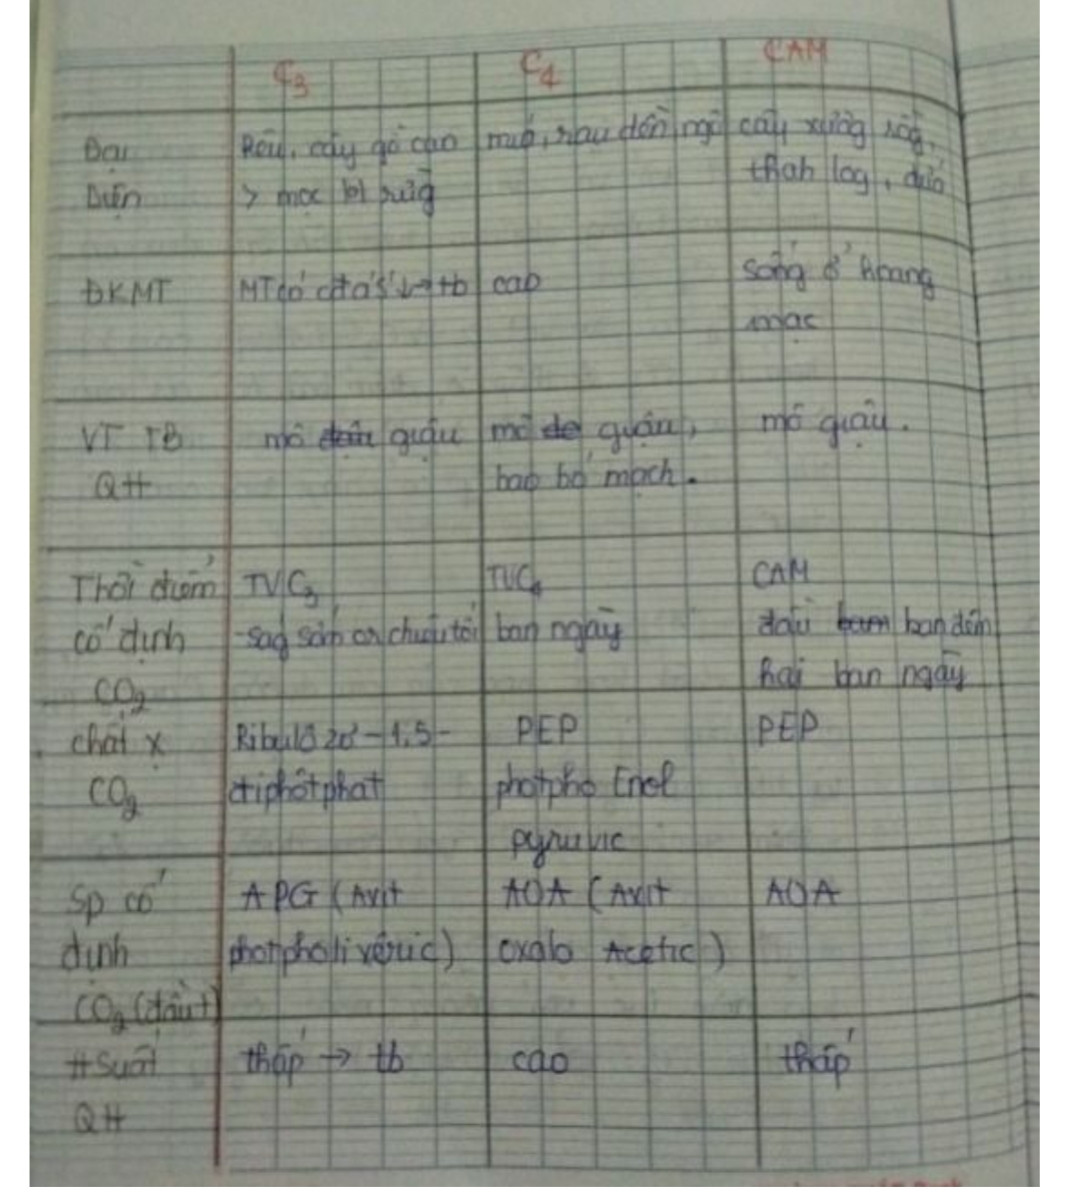 C3 C4 CAM
Đại Rêu, cây gỗ cao mía, rau dền, ngô cây xương rồng,
Diện > mọc rừng thah log, dứa
ĐKMT MT có cđ a's' ↓→tb cao sống ở hoang
mạc
VT TB mô giậu mô giậu, mô giậu.
QH bao bó mạch.
Thời điểm TVC3 TVC4 CAM
cố định -sag sớm or chiều tối ban ngày đầu ban đêm
CO2 hai ban ngày
chất x Ribulô zơ-1,5- PEP PEP
CO2 điphôtphat photpho Enol
pyruvic
Sp cố APG (Axit AOA (Axit AOA
định photpholivêric) oxalo Acetic)
CO2 (đầu t)
H Suất thấp → tb cao thấp
QH